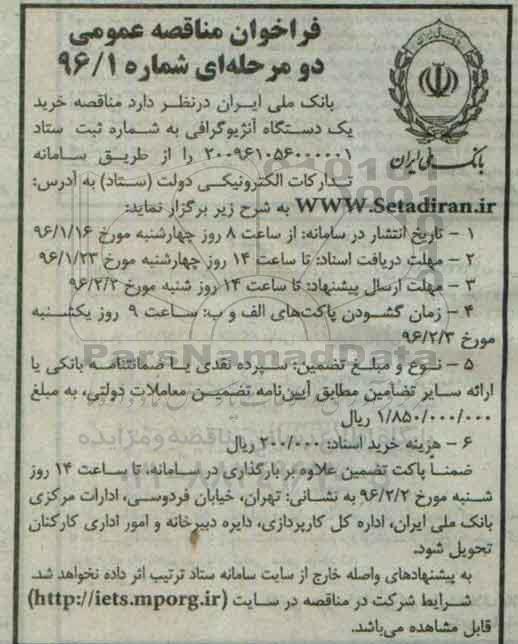 فراخوان مناقصه عمومی
دو مرحله‌ای شماره ۹۶/۱
بانک ملی ایران
بانک ملی ایران درنظر دارد مناقصه خرید
یک دستگاه آنژیوگرافی به شماره ثبت ستاد
۲۰۰۹۶۱۰۵۶۰۰۰۰۰۱ را از طریق سامانه
تدارکات الکترونیکی دولت (ستاد) به آدرس:
WWW.Setadiran.ir به شرح زیر برگزار نماید:
۱ - تاریخ انتشار در سامانه: از ساعت ۸ روز چهارشنبه مورخ ۹۶/۱/۱۶
۲ - مهلت دریافت اسناد: تا ساعت ۱۴ روز چهارشنبه مورخ ۹۶/۱/۲۳
۳ - مهلت ارسال پیشنهاد: تا ساعت ۱۴ روز شنبه مورخ ۹۶/۲/۲
۴ - زمان گشودن پاکت‌های الف و ب: ساعت ۹ روز یکشنبه
مورخ ۹۶/۲/۳
ParsNamadData
۵ - نوع و مبلغ تضمین: سپرده نقدی یا ضمانتنامه بانکی یا
ارائه سایر تضامین مطابق آیین‌نامه تضمین معاملات دولتی، به مبلغ
۱/۸۵۰/۰۰۰/۰۰۰ ریال
۶ - هزینه خرید اسناد: ۲۰۰/۰۰۰ ریال
ضمناً پاکت تضمین علاوه بر بارگذاری در سامانه، تا ساعت ۱۴ روز
شنبه مورخ ۹۶/۲/۲ به نشانی: تهران، خیابان فردوسی، ادارات مرکزی
بانک ملی ایران، اداره کل کارپردازی، دایره دبیرخانه و امور اداری کارکنان
تحویل شود.
به پیشنهادهای واصله خارج از سایت سامانه ستاد ترتیب اثر داده نخواهد شد.
شرایط شرکت در مناقصه در سایت (http://iets.mporg.ir)
قابل مشاهده می‌باشد.